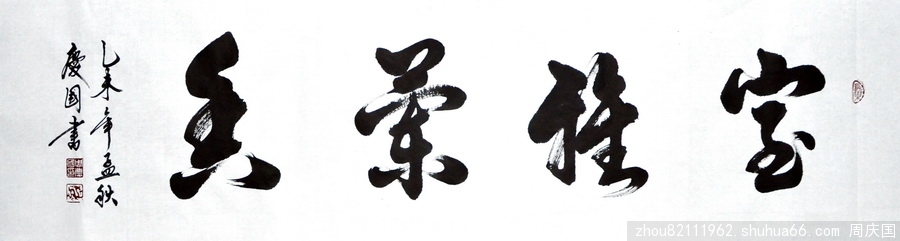 室雅兰香
乙未年孟秋
庆国书
zhou82111962. shuhua66. com 周庆国